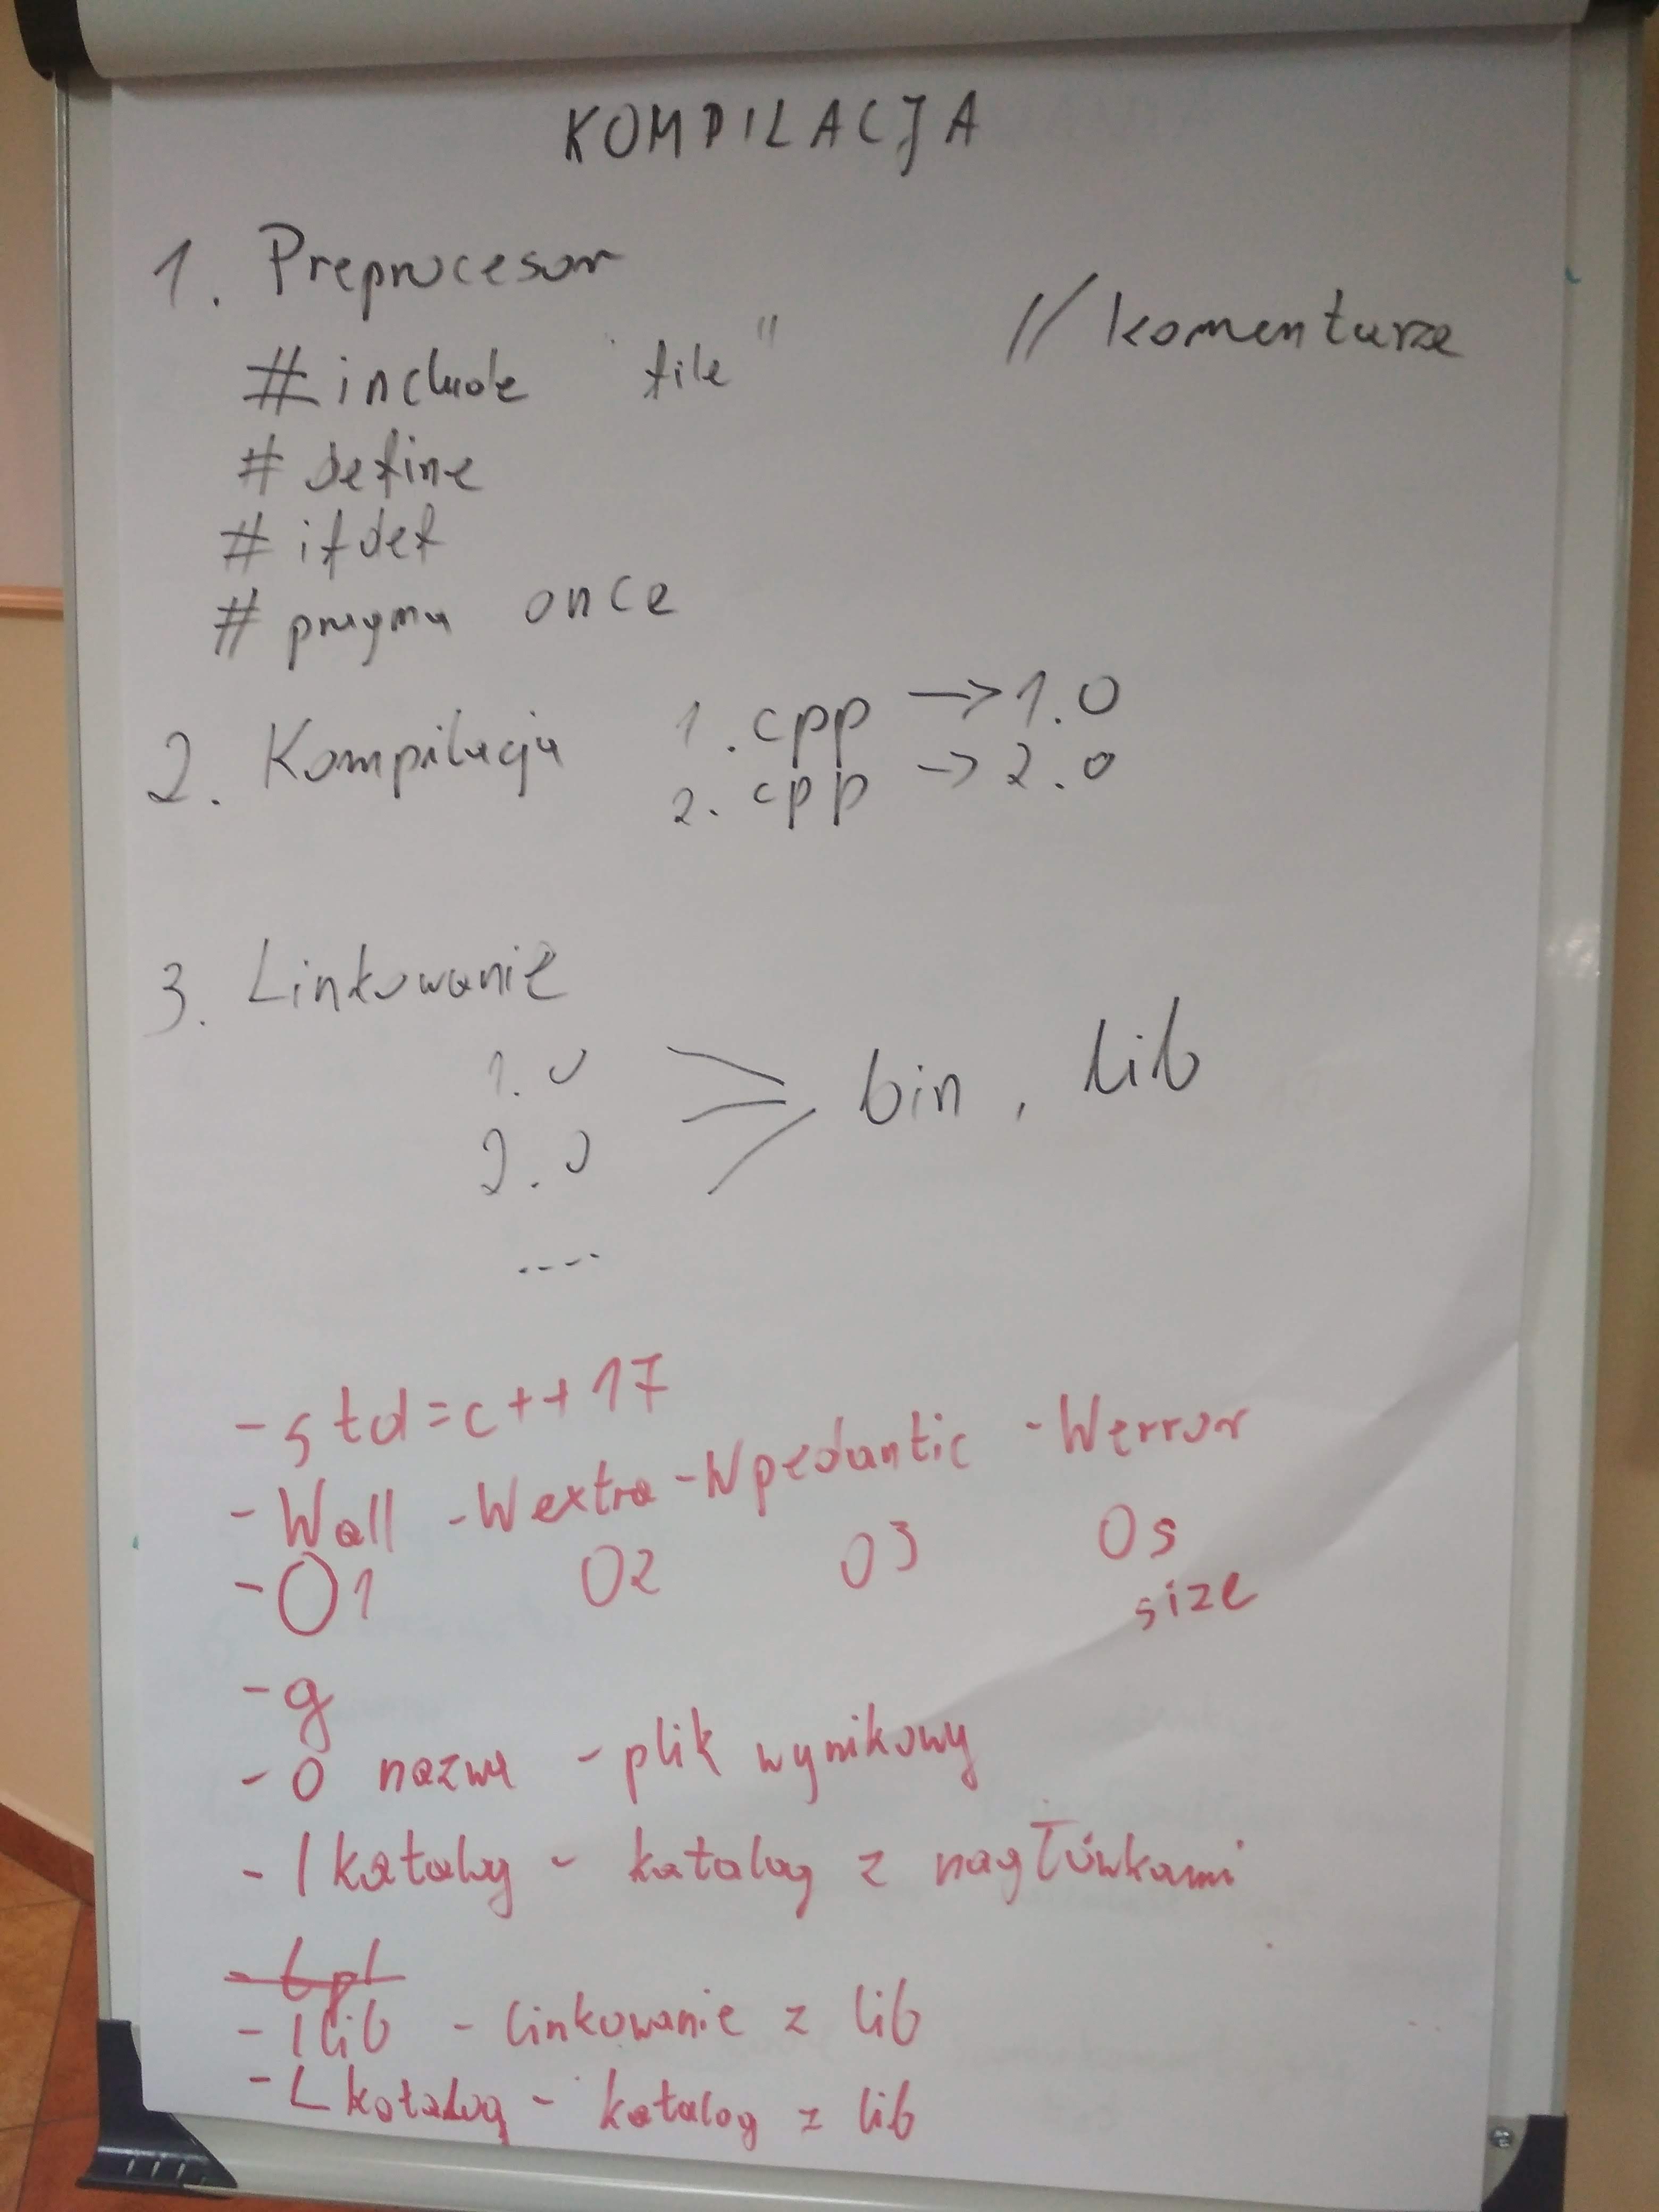 KOMPILACJA
1. Preprocesor
// komentarze
#include "file"
# define
# ifdef
# pragma once
2. Kompilacja 1.cpp -> 1.o
2.cpp -> 2.o
3. Linkowanie
1.o
2.o
bin, lib
....
-std=c++17
-Wall -Wextra -Wpedantic -Werror
-O1 O2 O3 Os
size
-g
-o nazwa - plik wynikowy
-Ikatalog - katalog z nagłówkami
-llib - linkowanie z lib
-Lkatalog - katalog z lib